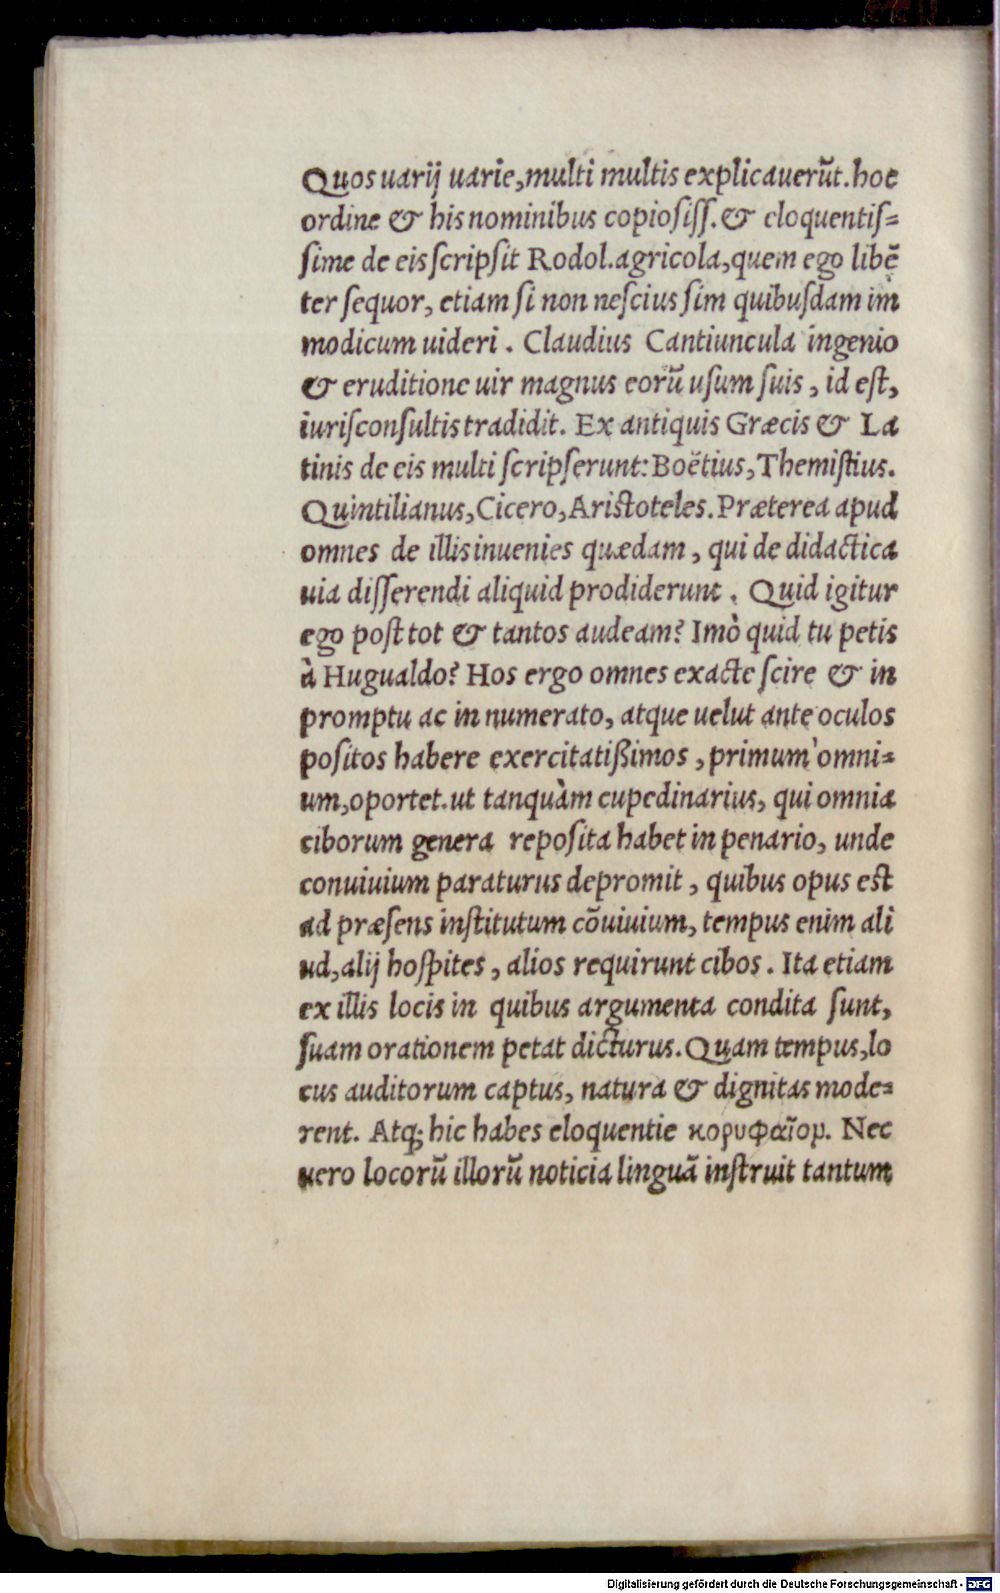 Quos uarij uarie, multi multis explicauerūt. hoc
ordine & his nominibus copiosiſſ. & eloquentiſ=
ſime de eis ſcripſit Rodol. agricola, quem ego libē
ter ſequor, etiam ſi non neſcius ſim quibuſdam im
modicum uideri. Claudius Cantiuncula ingenio
& eruditione uir magnus eorū uſum ſuis, id eſt,
iuriſconſultis tradidit. Ex antiquis Græcis & La
tinis de eis multi ſcripſerunt: Boëtius, Themiſtius.
Quintilianus, Cicero, Ariſtoteles. Præterea apud
omnes de illis inuenies quædam, qui de didactica
uia diſſerendi aliquid prodiderunt. Quid igitur
ego poſt tot & tantos audeam? Imò quid tu petis
à Hugualdo? Hos ergo omnes exacte ſcire & in
promptu ac in numerato, atque uelut ante oculos
poſitos habere exercitatißimos, primum omni=
um, oportet. ut tanquàm cupedinarius, qui omnia
ciborum genera repoſita habet in penario, unde
conuiuium paraturus depromit, quibus opus est
ad præſens inſtitutum cōuiuium, tempus enim ali
ud, alij hoſpites, alios requirunt cibos. Ita etiam
ex illis locis in quibus argumenta condita ſunt,
ſuam orationem petat dicturus. Quam tempus, lo
cus auditorum captus, natura & dignitas mode=
rent. Atq; hic habes eloquentie κορυφαῖομ. Nec
uero locorū illorū noticia linguā inſtruit tantum
Digitalisierung gefördert durch die Deutsche Forschungsgemeinschaft - DFG